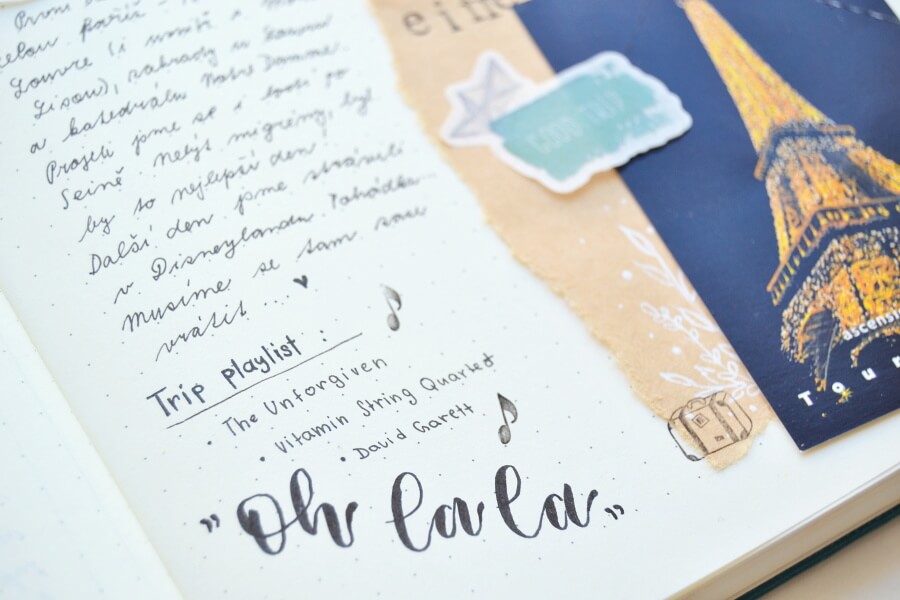 První
celou Paříž -
Louvre (i s Monou
Lisou), zahrady u Louvru
a katedrálu Notre Damme.
Projeli jsme se i lodí po
Seině. Nebýt migrény, byl
by to nejlepší den!
Další den jme strávili
v Disneylandu. Pohádka...
Musíme se tam zase
vrátit .... ♥
Trip playlist :
• The Unforgiven
• Vitamin String Quarted
• David Garett
„Oh la la„
ein
GOOD TRIP
ascensi
Tour